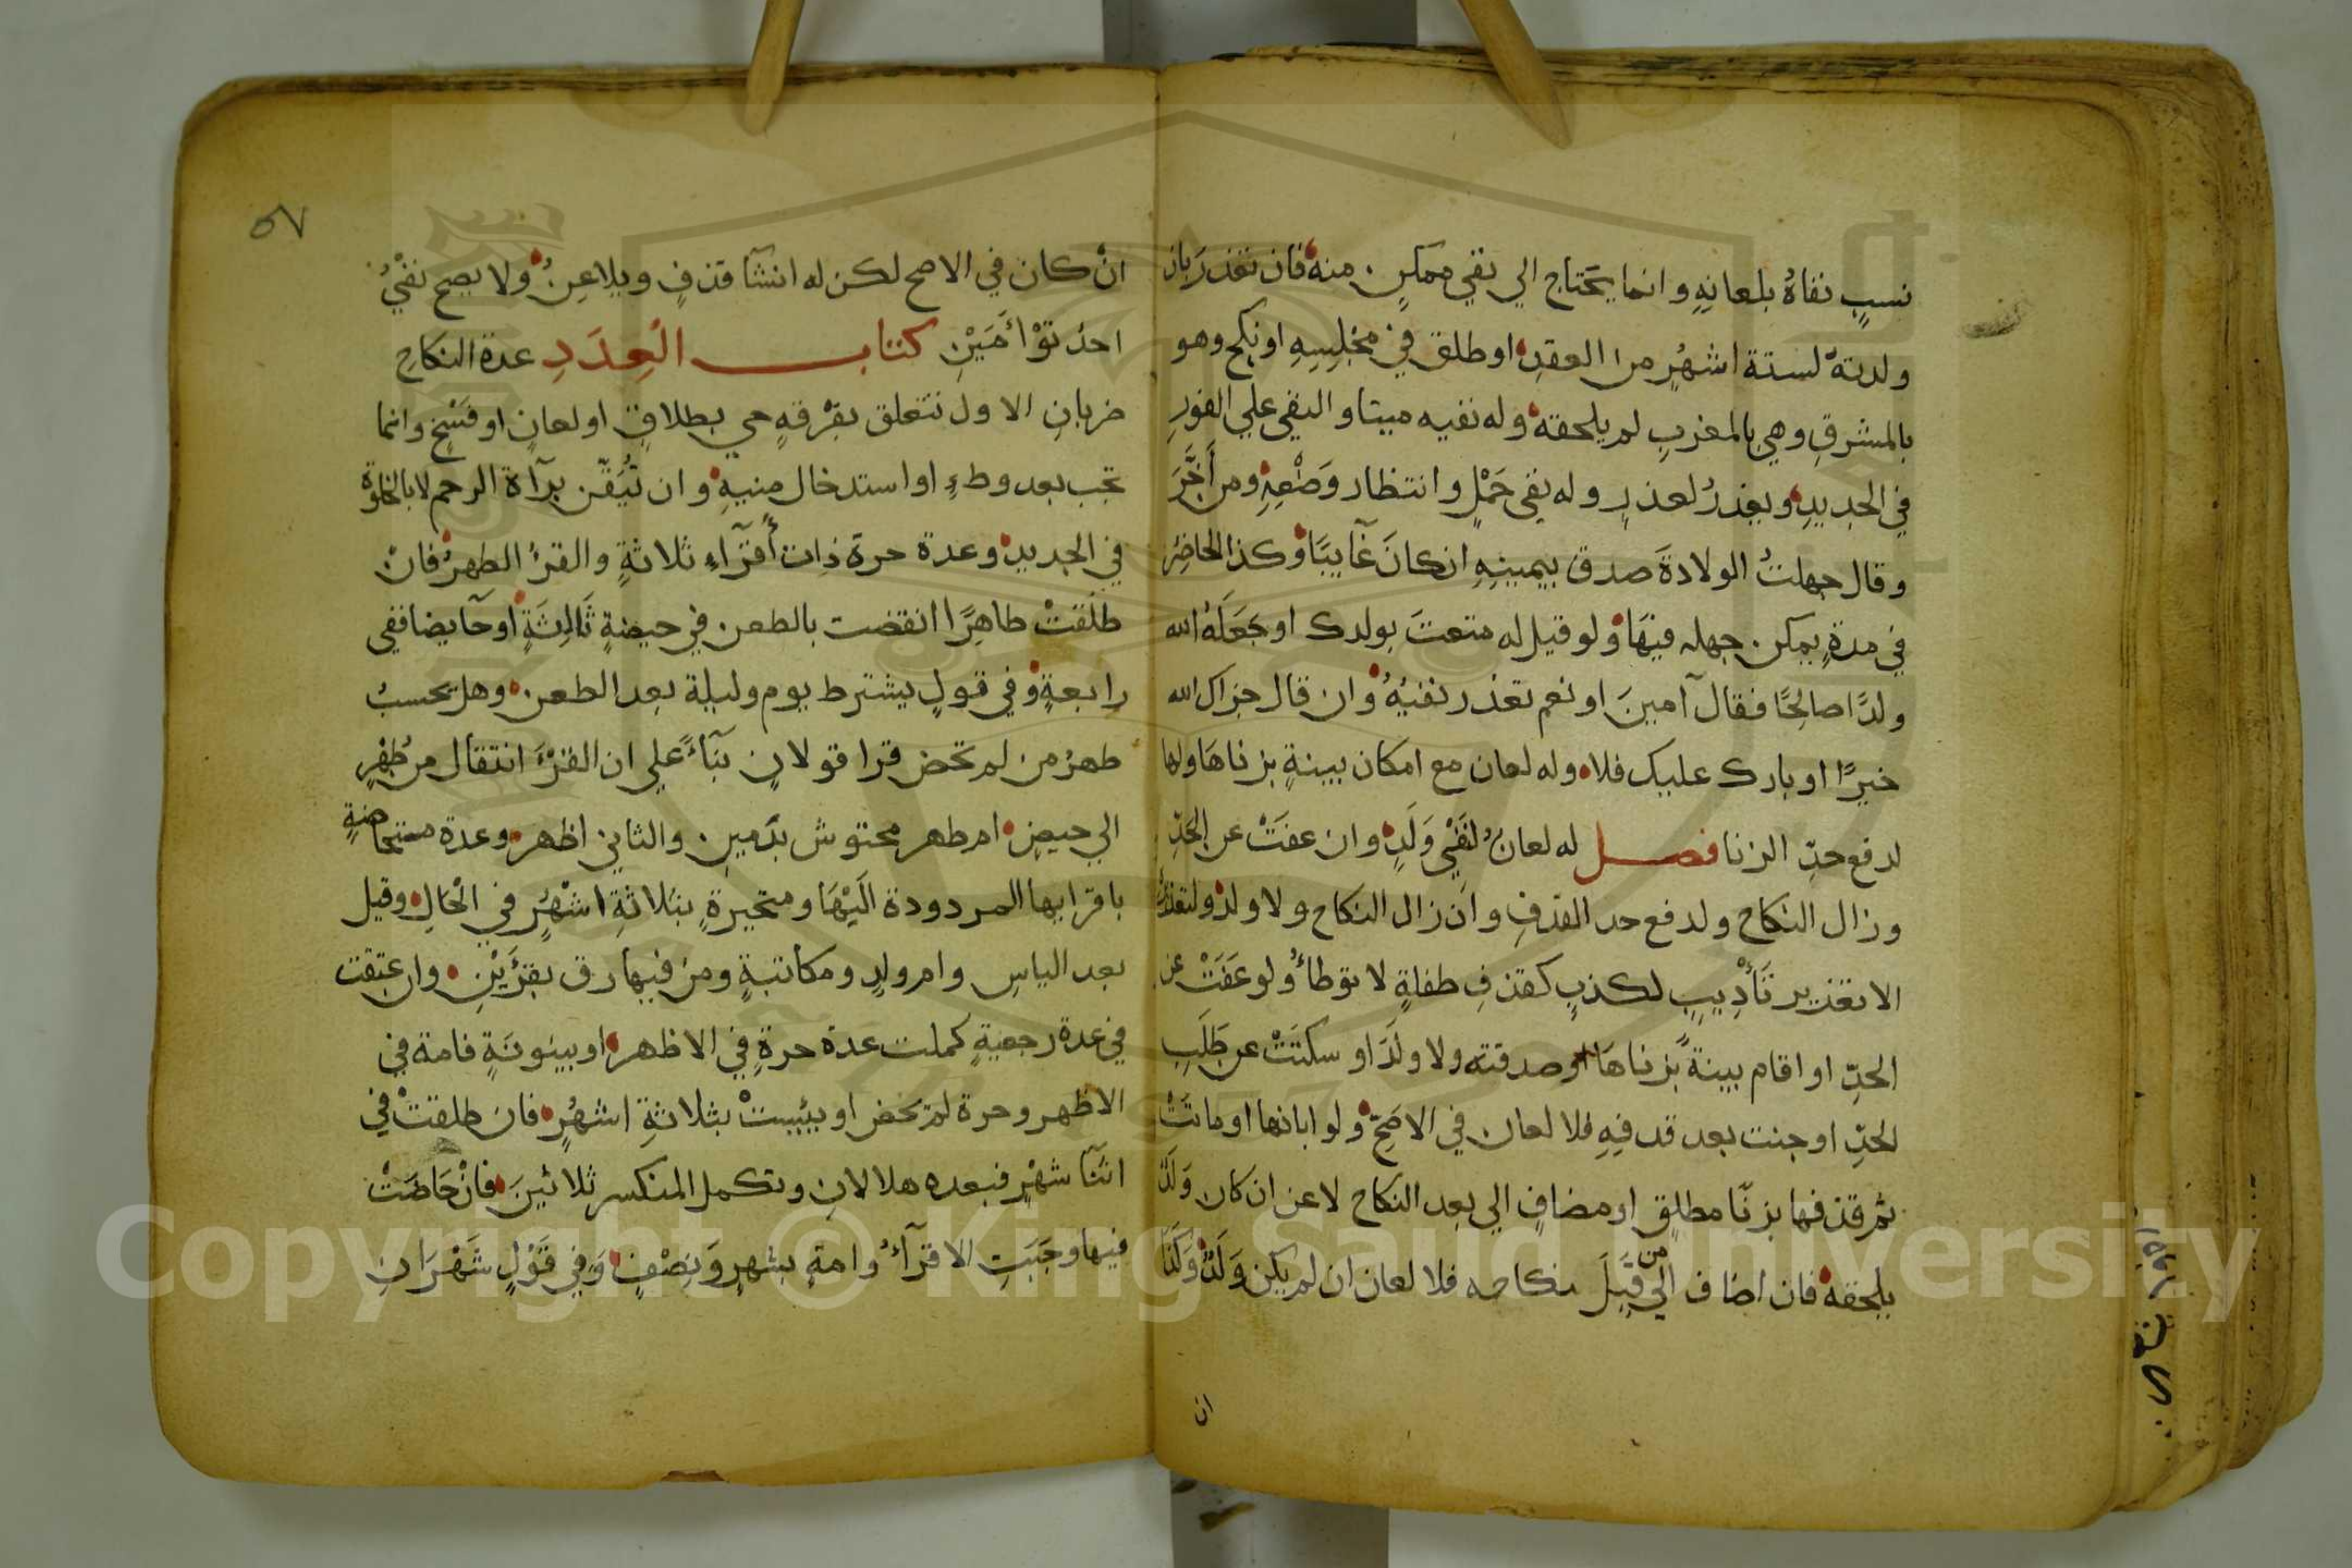 نسبٍ نفاهُ بلعانِهِ وانما يحَتاج الي نفي ممكنٍ منه فان تعذر بان
ولدتهُ لستة اشهُرٍ من العقدِ او طلق في مجْلِسِهِ او نكح وهو
بالمشرقِ وهي بالمغربِ لم يلحقه وله نفيه ميتا والنفي علي الفورِ
في الجديدِ ويعذرُ لعذرٍ وله نفي حَمْلٍ وانتظار وَضْعِهِ ومن أَخَّرَ
وقال جهلتُ الولادةَ صدق بيمينِهِ ان كانَ غآيبًا وكذا الحاضِرُ
في مدةٍ يمكن جهله فيهَا ولو قيل له متعتَ بولدك او جَعَلَهُ الله
ولدًا صالحًا فقال آمينَ او نعم تعذر نفيُهُ وان قال جزاك الله
خيرًا او بارك عليك فلا وله لعان مع امكان بينةٍ بزناهَا ولها
لدفع حدِّ الزنا فصل له لعانٌ لنَفْيِ وَلَدٍ وان عفَتْ عن الحَدِّ
وزال النكاح ولدفع حد القذفِ وان زال النكاح ولا ولدَ ولتعذيرٍ
الا تعذير تَأْدِيبٍ لكذبٍ كقذفِ طفلةٍ لا توطأُ ولو عَفَتْ عن
الحدِّ او اقام بينةً بزناهَا او صدقته ولا ولَدَ او سكتَتْ عن طَلَبِ
الحدِّ او جنت بعد قدفِهِ فلا لعان في الاصَحِّ ولو ابانها او ماتَتْ
ثم قذفها بزنًا مطلقٍ او مضافٍ الي بعد النكاح لاعن ان كان وَلَدٌ
يلحقهُ فان اضاف الي من قَبْلَ نكاحه فلا لعان ان لم يكن وَلَدٌ وَكَذَا
ان
٥٧
انْ كان في الاصح لكن له انشآ قذفٍ ويلاعِنُ ولا يصح نفْيُ
احدُ توْأَمَيْنِ كتاب الْعِدَدِ عدة النكاحِ
ضربانِ الاول تتعلق بفِرْقهٍ حي بطلاقٍ او لعانٍ او فَسْخٍ وانما
تجب بعد وطءٍ او استدخال منيهِ وان تُيُقّن برآءة الرحم لا بالخلوة
في الجديد وعدة حرة ذات أقرآءٍ ثلاثةٍ والقرءُ الطهرُ فانْ
طلقتْ طاهِرًا انقضت بالطعن في حيضةٍ ثَالِثَةٍ او حآيضا ففي
رابعةٍ وفي قولٍ يشترط يوم وليلة بعد الطعن وهل يحسبُ
طهرُ من لم تحض قرا قولانِ بنآءً علي ان القرْءَ انتقال من طُهْرٍ
الي حيضٍ ام طهر محتوش بدَمينِ والثاني اظهر وعدة مستحاضةٍ
باقرايها المردودة الَيْهَا ومتحيرةٍ بثلاثةِ اشْهُرٍ في الْحَالِ وقيل
بعد الياسِ وام ولدٍ ومكاتبةٍ ومن فيها رق بقرْءَيْنِ وان عتقت
في عدة رجعيةٍ كملت عدة حرةٍ في الاظهر او بينونَةٍ فامة في
الاظهر وحرة لم تحض او يئيستْ بثلاثةِ اشهُرٍ فان طلقتْ في
اثنآ شهْرٍ فبعده هلالانِ وتكمل المنكسر ثلاثينَ فانْ حَاضَتْ
فيها وجَبَتِ الاقرآءُ وامةٍ بشهرٍ وَنِصْفٍ وَفي قَوْلٍ شَهْرَانِ
Copyright © King Saud University